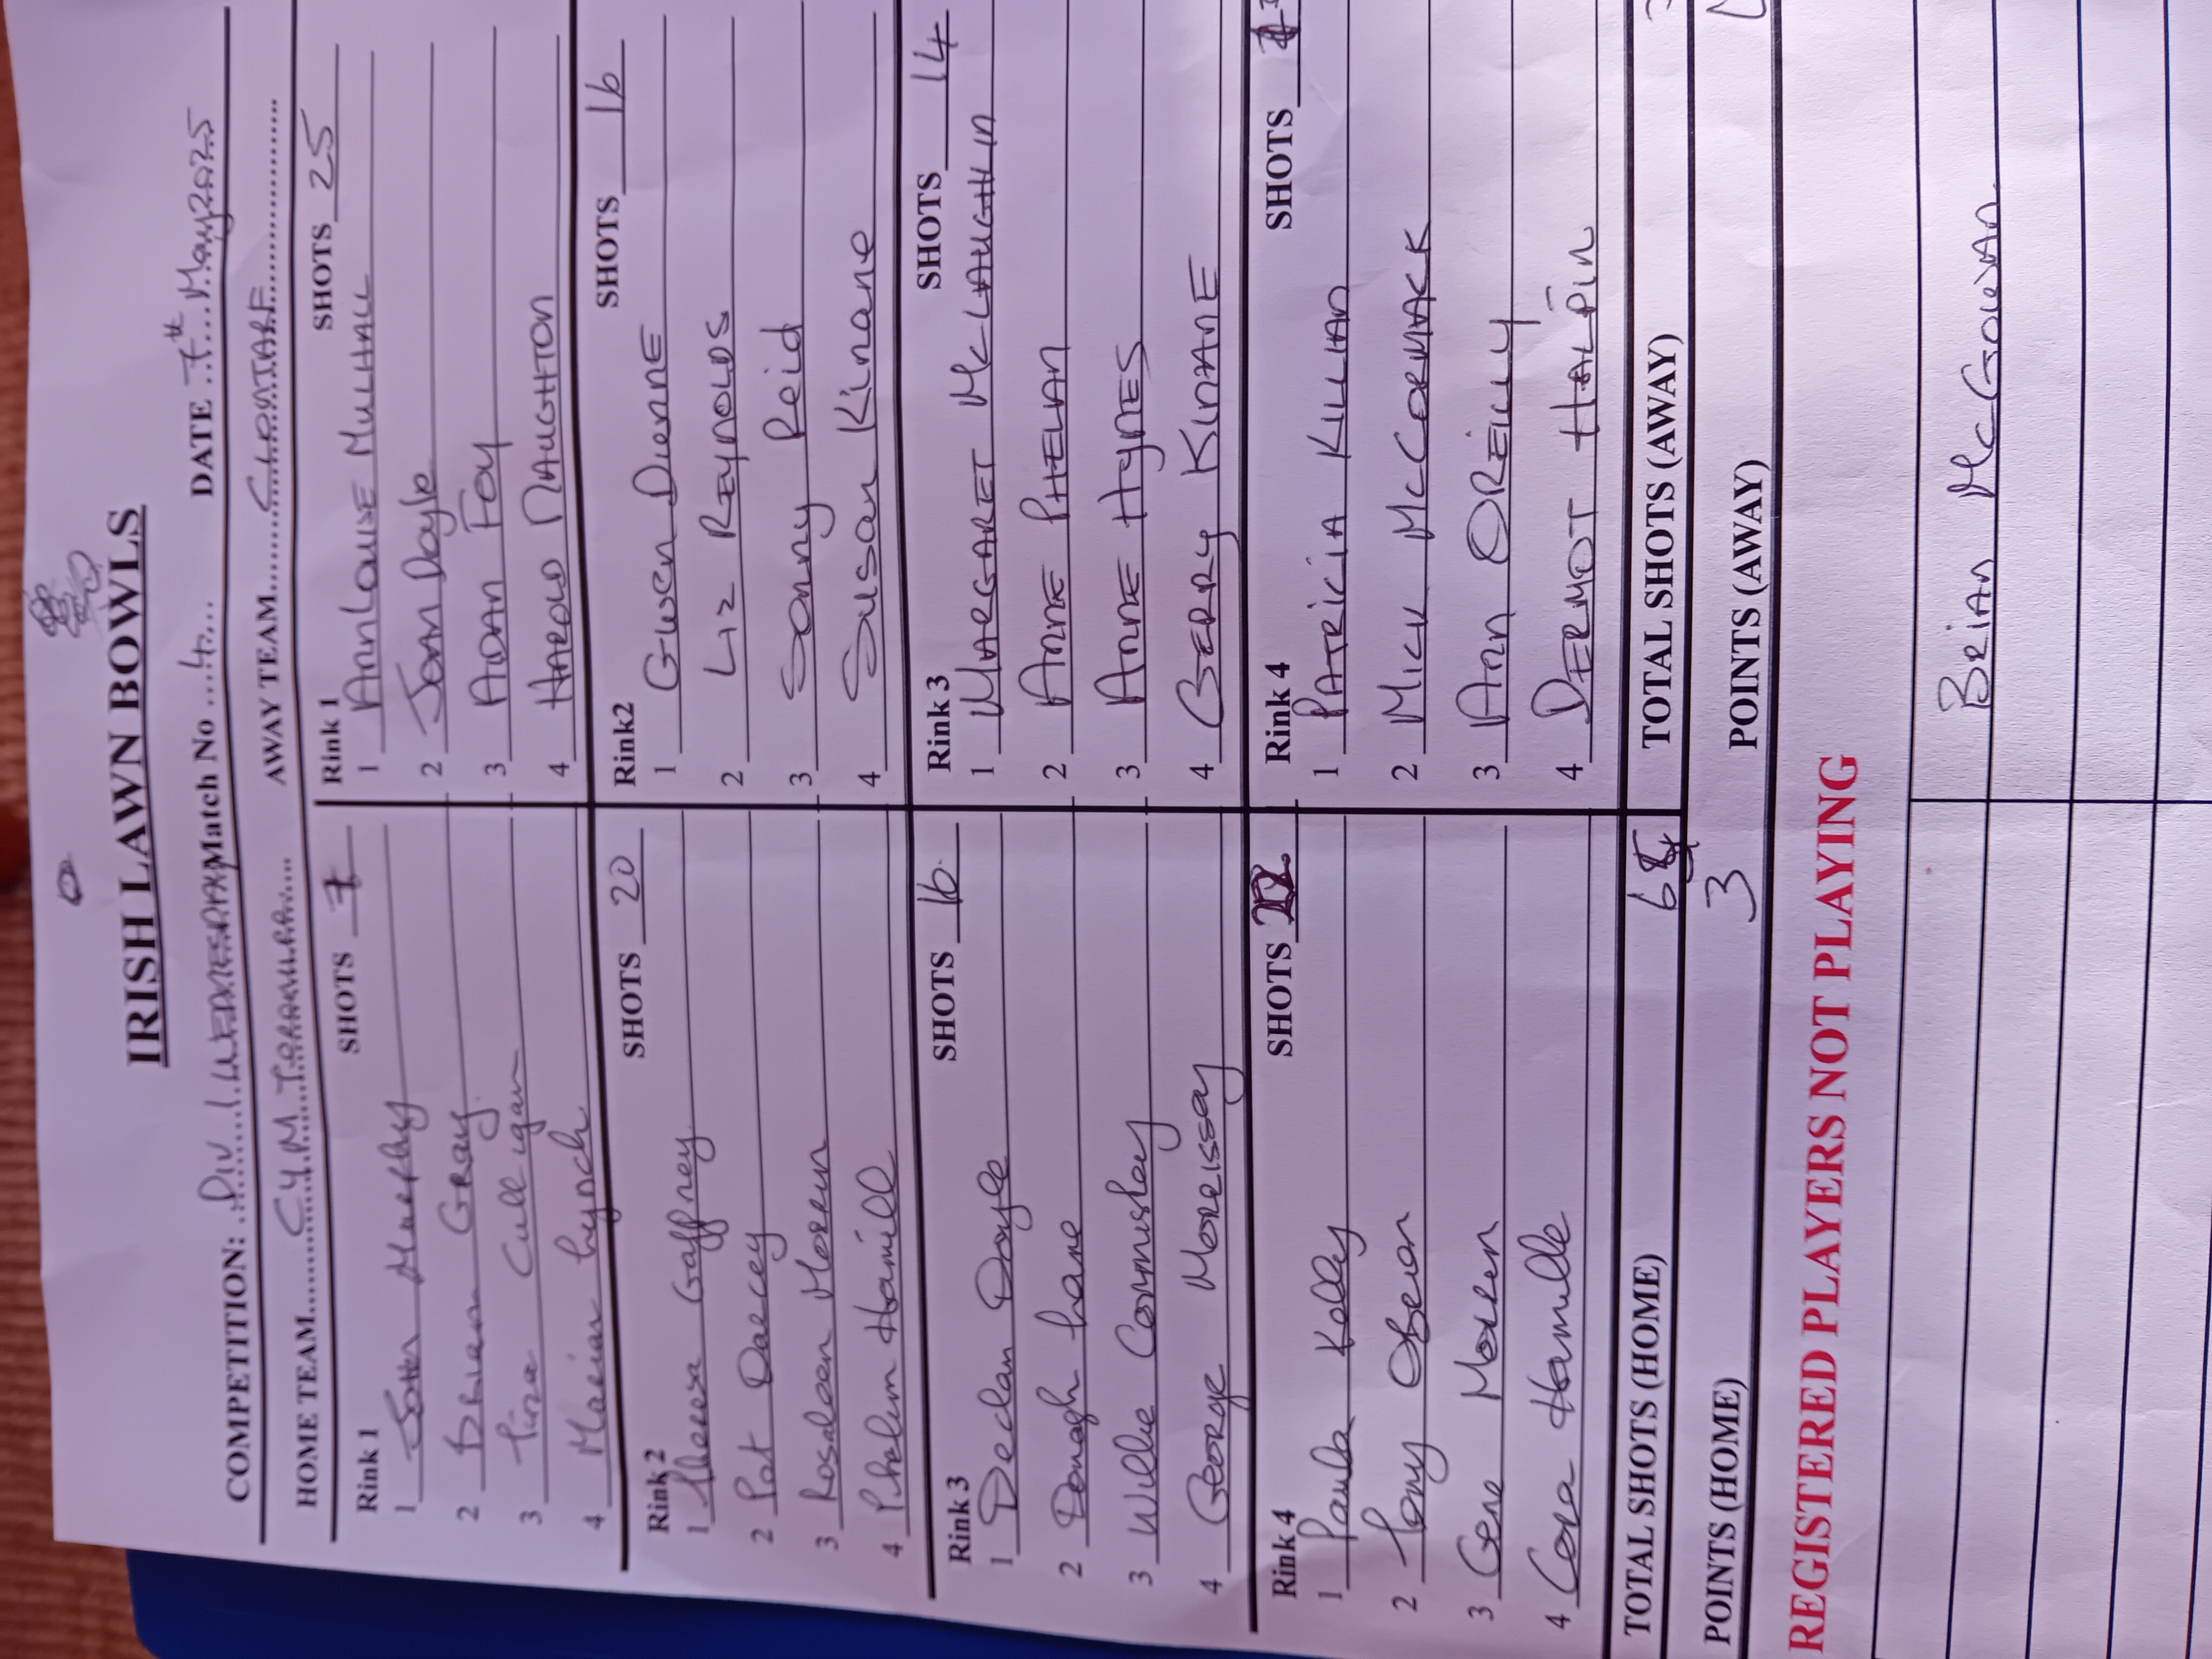 IRISH LAWN BOWLS
COMPETITION: Div 1 WEDNESDAY Match No 4 DATE 7th May 2025
HOME TEAM C.Y.M TERENURE AWAY TEAM CLONTARF
Rink 1 SHOTS 7 Rink 1 SHOTS 25
1 John Murphy 1 AnnLouise Mulhall
2 Brian Gray 2 Joan Doyle
3 Tina Culligan 3 AIDAN FOY
4 Marian Lynch 4 HAROLD NAUGHTON
Rink 2 SHOTS 20 Rink2 SHOTS 16
1 Theresa Gaffney 1 Gwen Dienne
2 Pat Darcey 2 Liz REYNOLDS
3 Rosaleen Moran 3 Sonny Reid
4 Phelim Hamill 4 Susan Kinane
Rink 3 SHOTS 16 Rink 3 SHOTS 14
1 Declan Doyle 1 MARGARET McLAUGHLIN
2 Donagh Lane 2 ANNE PHELAN
3 Willie Cormiskey 3 ANNE HYNES
4 George Morrissay 4 GERRY KINANE
Rink 4 SHOTS Rink 4 SHOTS
1 Paula Kelly 1 PATRICIA KILLIAN
2 Tony Obrien 2 MICK McCORMACK
3 Gene Moran 3 Ann OREILLY
4 Cora Hamille 4 DERMOT HALPIN
TOTAL SHOTS (HOME) TOTAL SHOTS (AWAY)
POINTS (HOME) 3 POINTS (AWAY)
REGISTERED PLAYERS NOT PLAYING
BRIAN McGOWAN